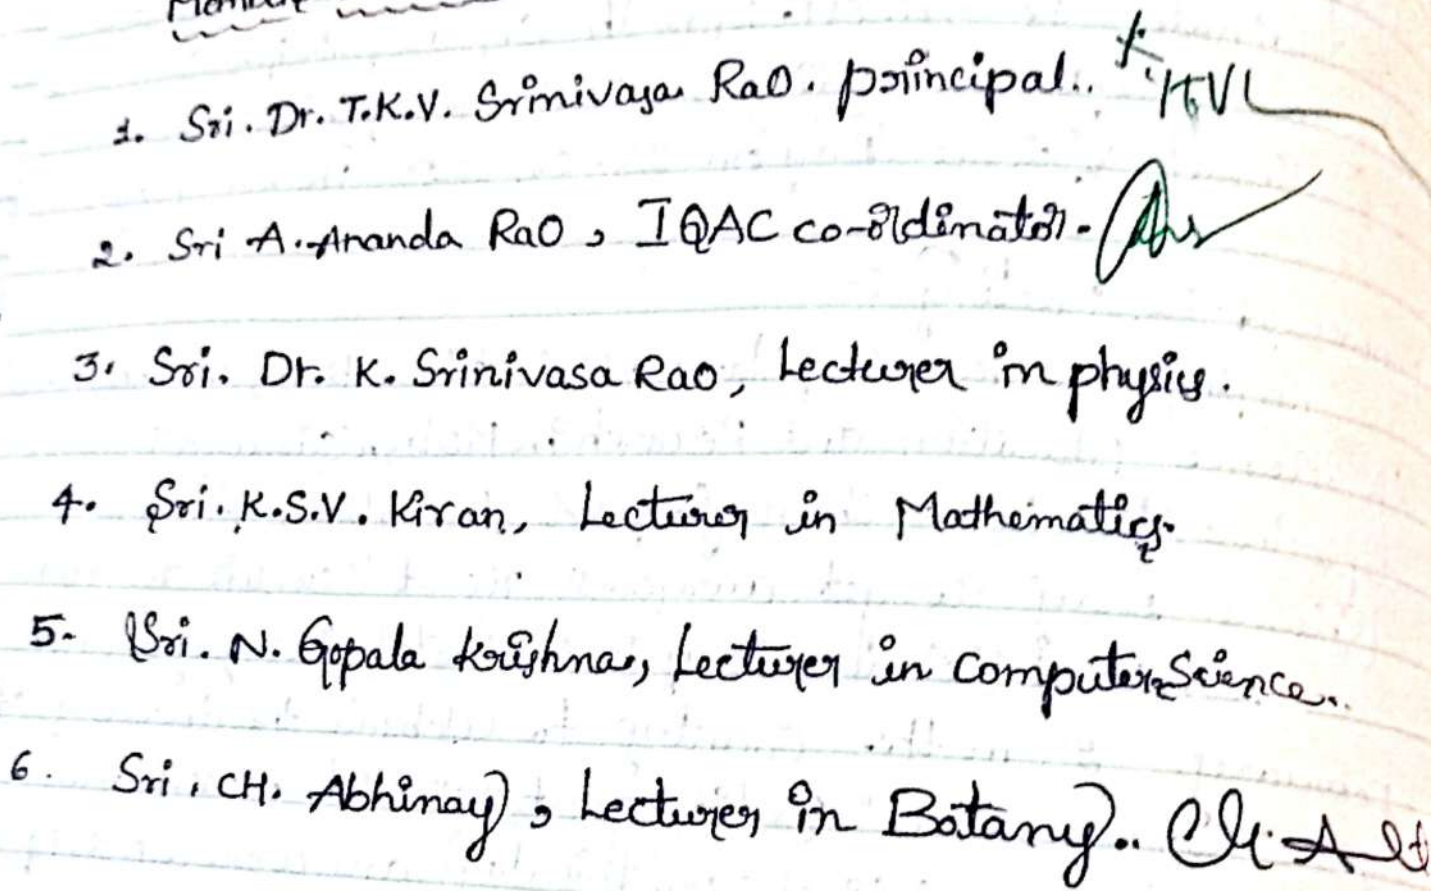 1. Sri. Dr. T.K.V. Srinivasa Rao. principal..
2. Sri A. Ananda Rao, IQAC co-ordinator.
3. Sri. Dr. K. Srinivasa Rao, Lecturer in physics.
4. Sri. K.S.V. Kiran, Lecturer in Mathematics.
5. Sri. N. Gopala Krishna, Lecturer in Computer Science.
6. Sri. CH. Abhinay, Lecturer in Botany..